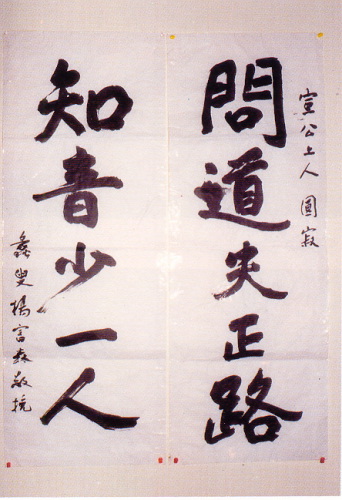 宣公上人 圓寂
問道失正路
知音少一人
蠡叟楊富森敬挽